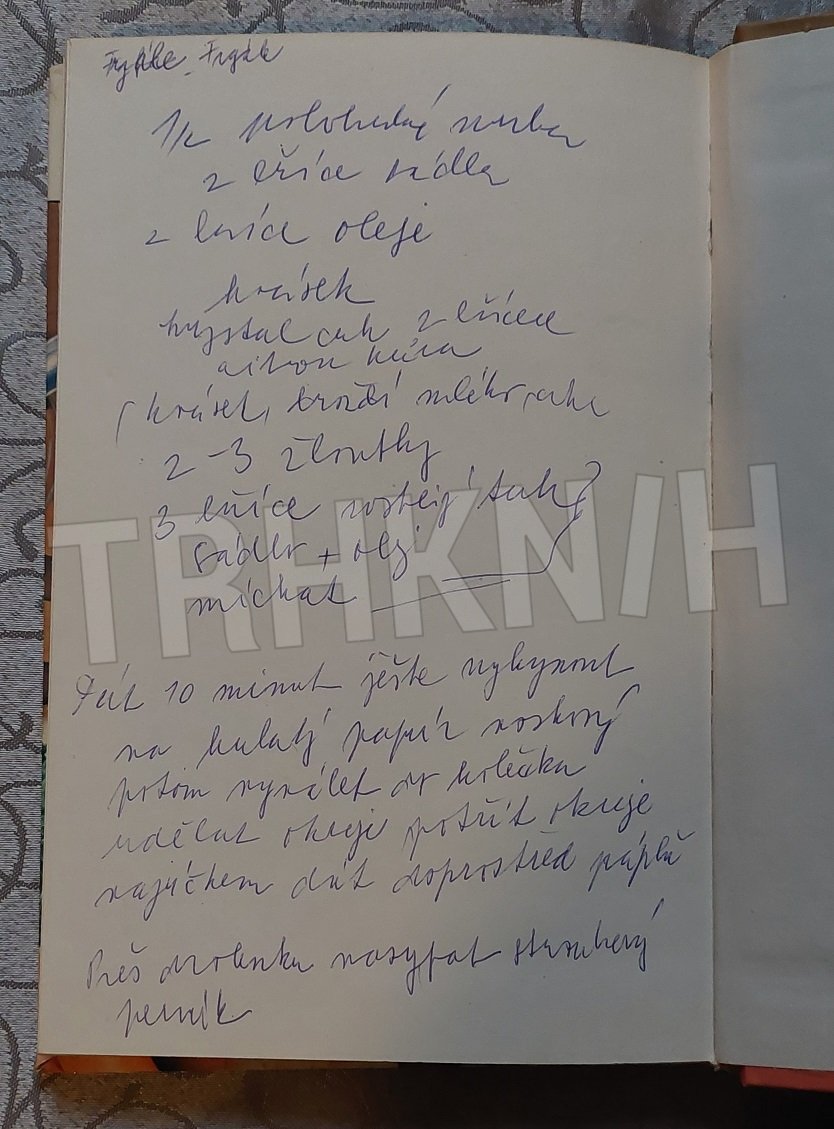 Frgále Frgál
1/2 polohrubá mouka
2 lžíce sádla
2 lžíce oleje
krásek
krystal cuk 2 lžíce
citron kůra
( kvásek, droždí mléko, cukr
2-3 žloutky
3 lžíce rostlý tuk
sádlo + olej
míchat
Dát 10 minut ještě vykynout
na kulatý papír voskový
potom vyválet do kolečka
udělat okraje potřít okraje
vajíčkem dát doprostřed náplň
Přes drobenku nasypat strouhaný
perník
TRHKN/H